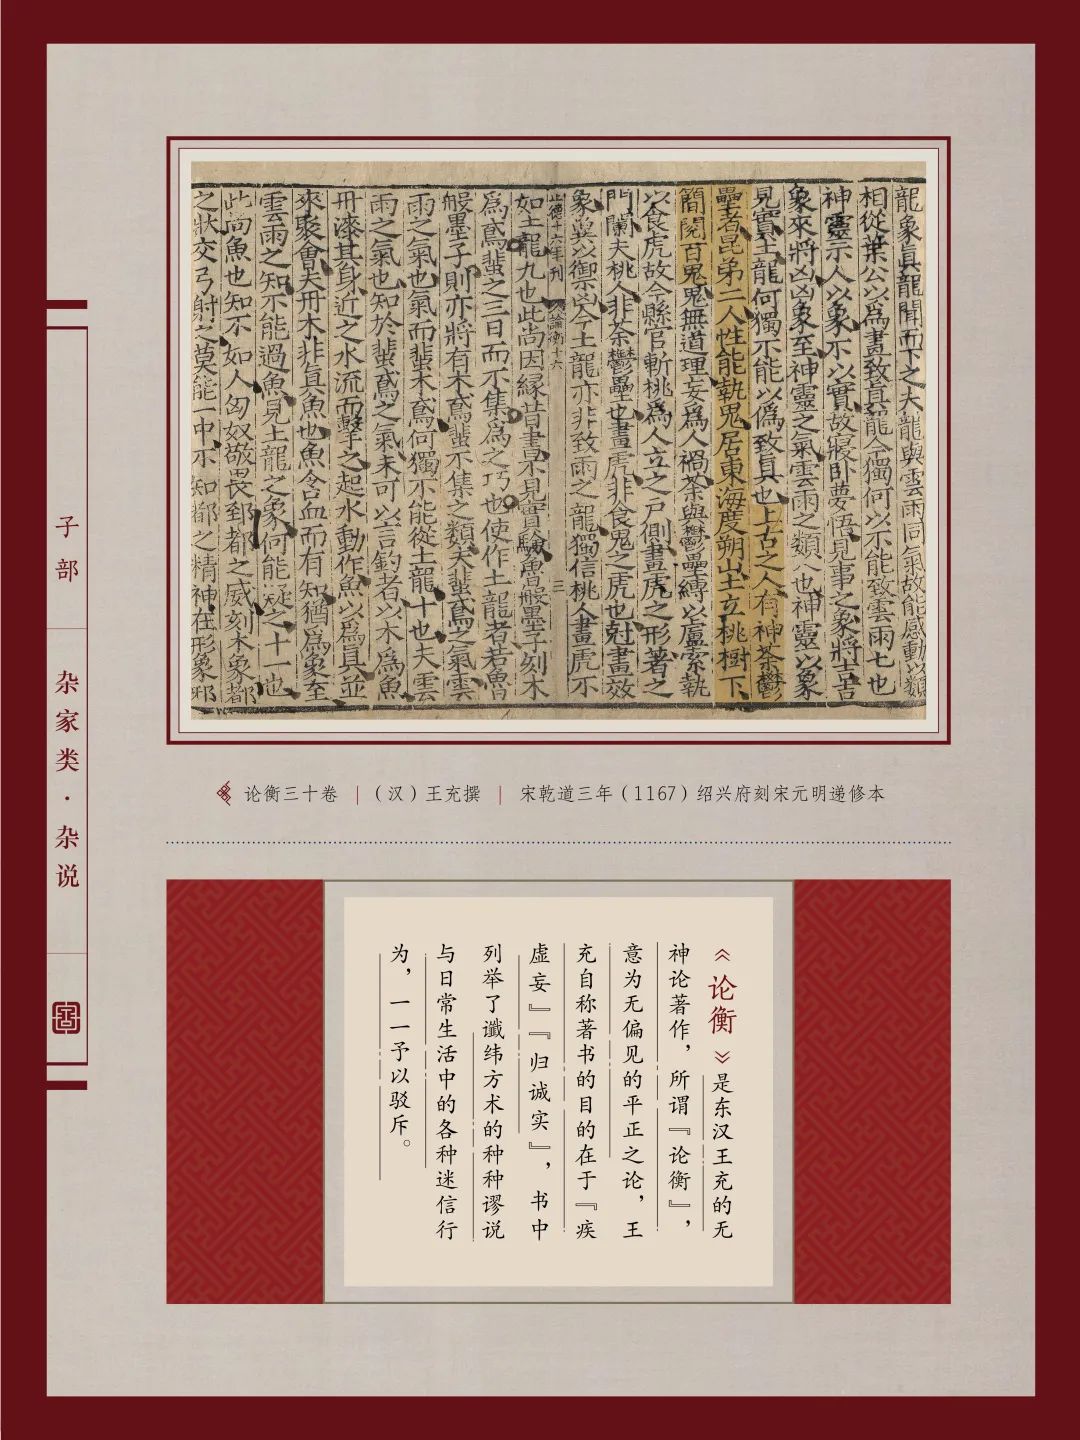 龍象眞龍聞而下之夫龍與雲雨同氣故能感動以類
相從葉公以爲畫致眞龍今獨何以不能致雲雨七也
神靈示人以象不以實故寢卧夢悟見事之象將吉吉
象來將凶凶象至神靈之氣雲雨之類八也神靈以象
見實土龍何獨不能以僞致真也上古之人有神荼鬱
壘者昆弟二人性能執鬼居東海度朔山上立桃樹下
簡閱百鬼鬼無道理妄爲人禍荼與鬱壘縛以盧索執
以食虎故今縣官斬桃爲人立之戶側畫虎之形著之
門闌夫桃人非荼鬱壘也畫虎非食鬼之虎也尅畫效
象冀以禦凶今土龍亦非致雨之龍獨信桃人畫虎不
正德十六年刊 論衡十六 三
如土龍九也此尚因緣昔書不見實驗魯般墨子刻木
爲鳶蜚之三日而不集爲之巧也使作土龍者若魯
般墨子則亦將有木鳶蜚不集之類夫蜚鳶之氣雲
雨之氣也氣而蜚木鳶何獨不能從土龍十也夫雲
雨之氣也知於蜚鳶之氣未可以言釣者以木爲魚
丹漆其身近之水流而擊之起水動作魚以爲真並
來聚會夫丹木非眞魚也魚含血而有知猶爲象至
雲雨之知不能過魚見土龍之象何能疑之十一也
此尚魚也知不如人匈奴敬畏郅都之威刻木象都
之狀交弓射之莫能一中不知都之精神在形象邪
子部
杂家类·杂说
论衡三十卷 | （汉）王充撰 | 宋乾道三年（1167）绍兴府刻宋元明递修本
《论衡》是东汉王充的无
神论著作，所谓『论衡』，
意为无偏见的平正之论，王
充自称著书的目的在于『疾
虚妄』『归诚实』，书中
列举了谶纬方术的种种谬说
与日常生活中的各种迷信行
为，一一予以驳斥。